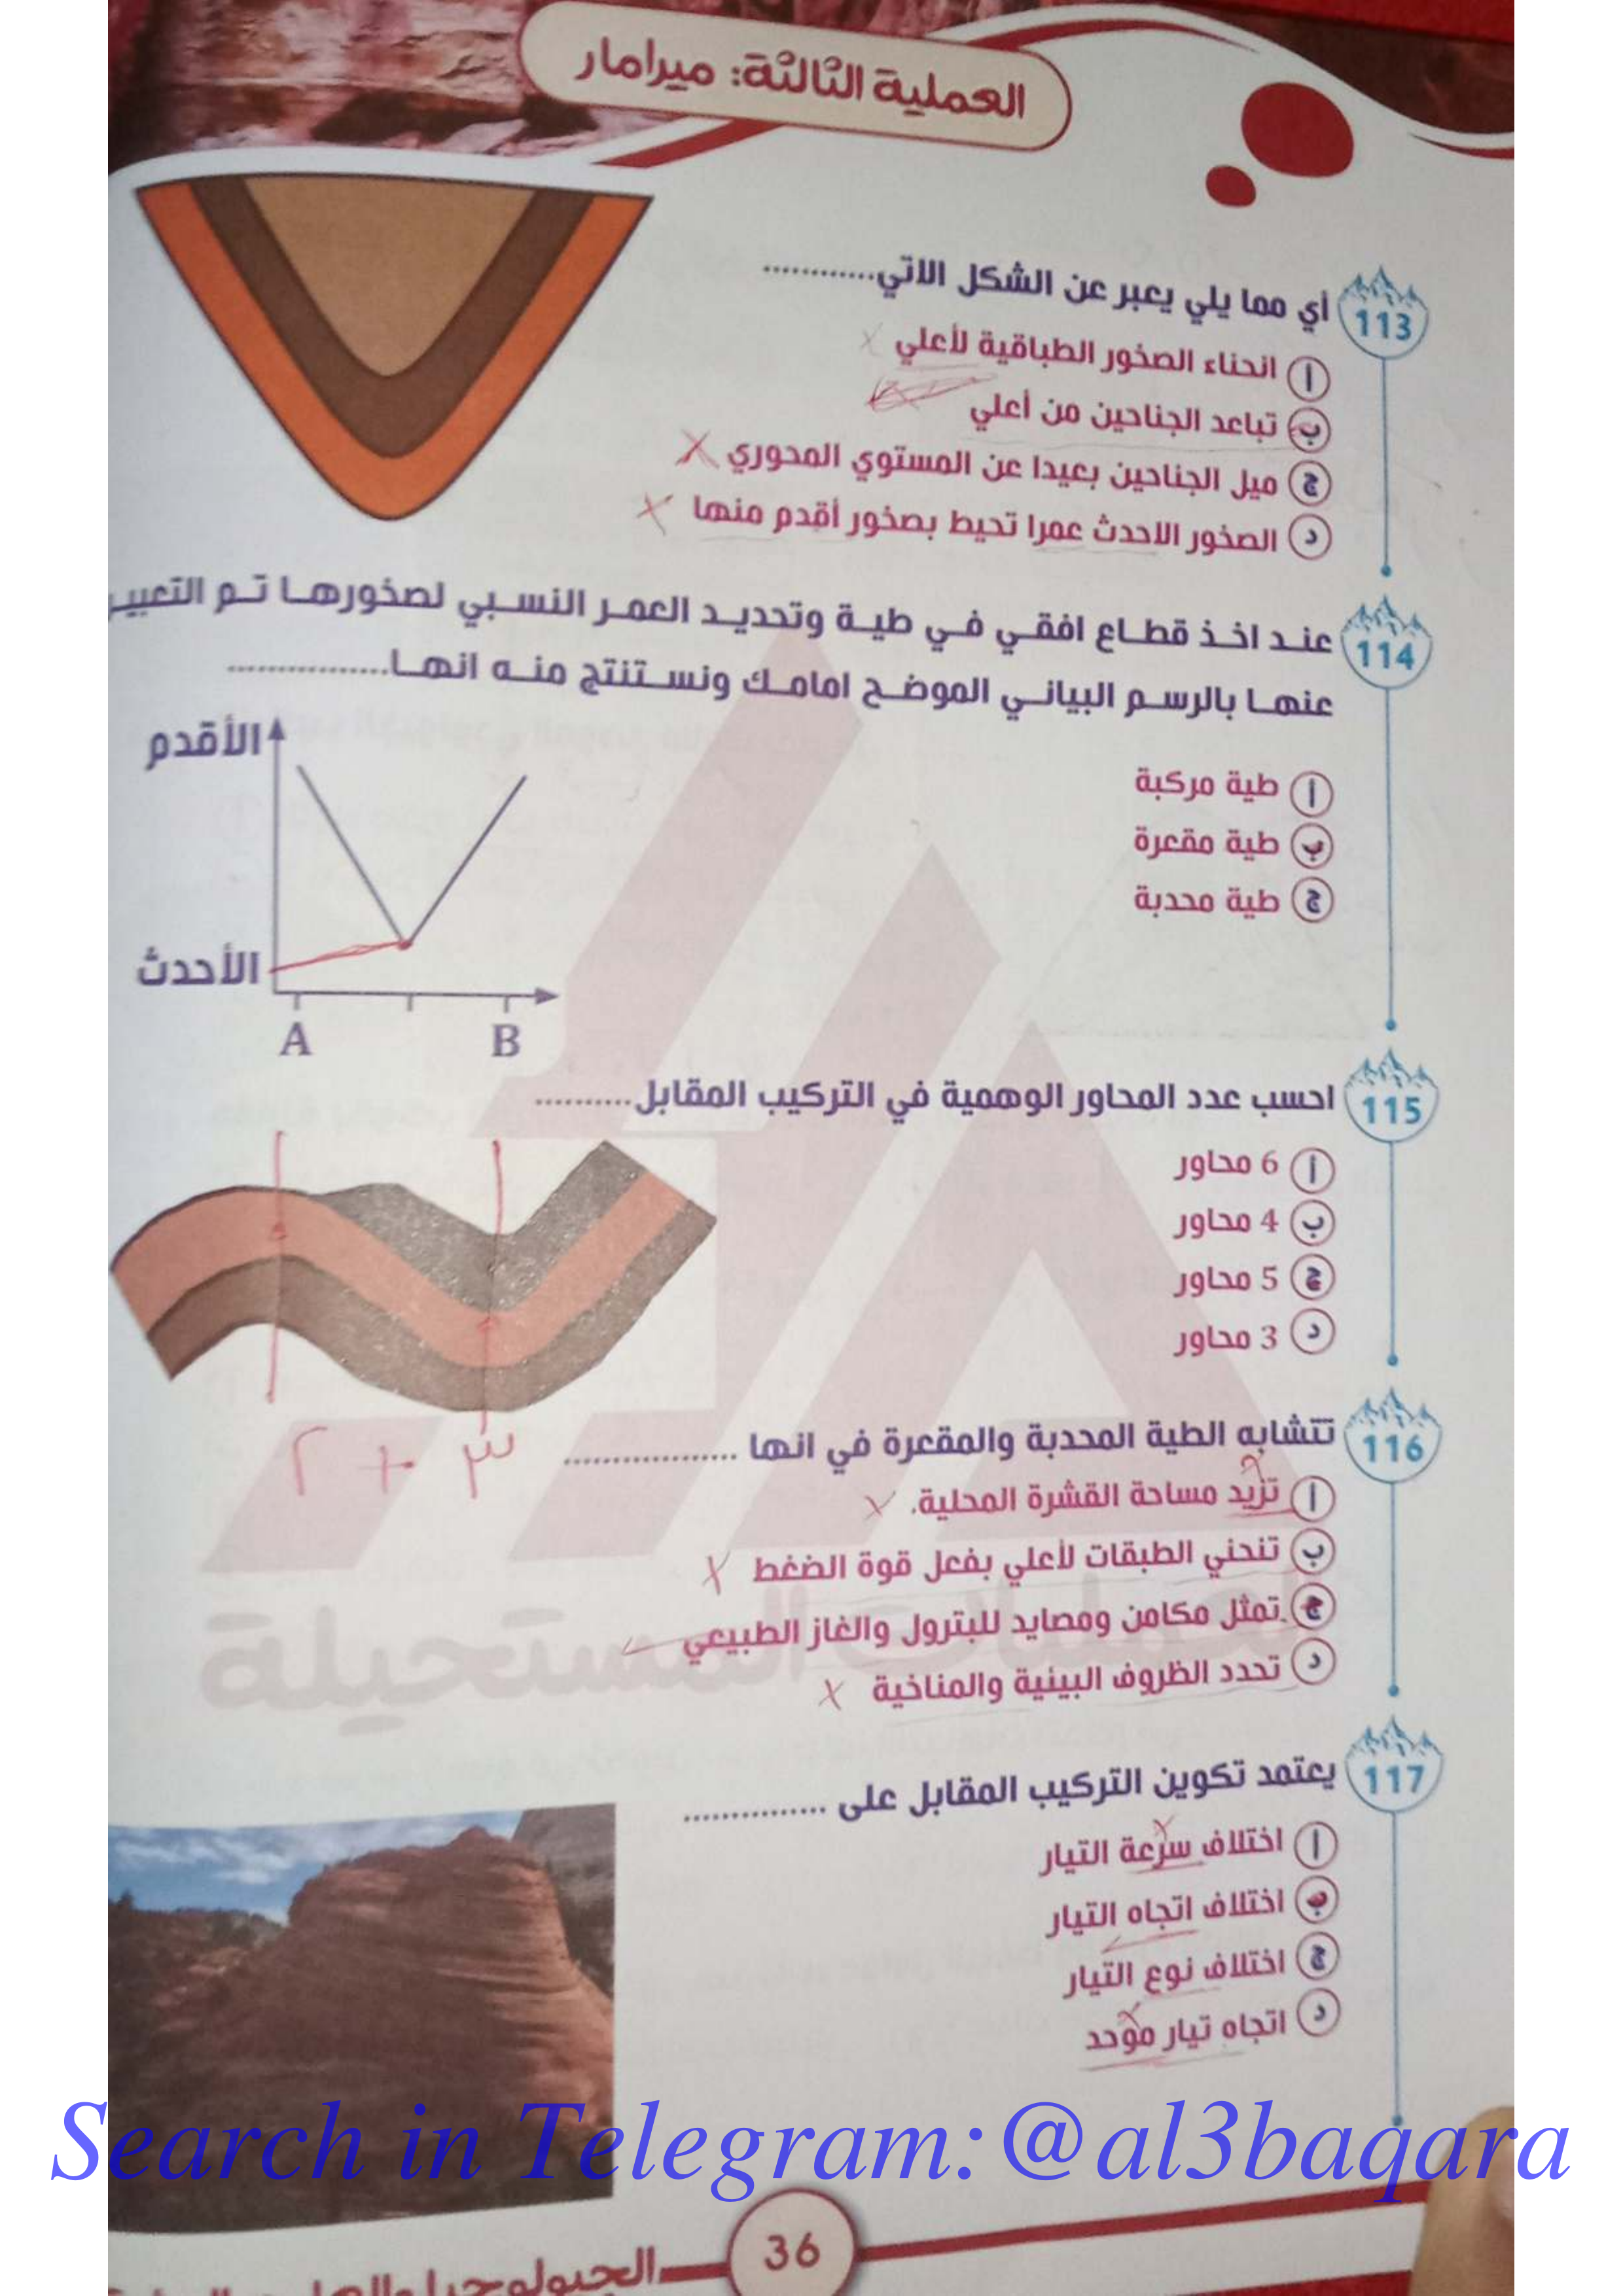 العملية الثالثة: ميرامار
113 أي مما يلي يعبر عن الشكل الاتي............
أ انحناء الصخور الطباقية لأعلي
ب تباعد الجناحين من أعلي
ج ميل الجناحين بعيدا عن المستوي المحوري
د الصخور الاحدث عمرا تحيط بصخور أقدم منها
114 عند اخذ قطاع افقي في طية وتحديد العمر النسبي لصخورها تم التعبير
عنها بالرسم البياني الموضح امامك ونستنتج منه انها................
أ طية مركبة
ب طية مقعرة
ج طية محدبة
الأقدم
الأحدث
A B
115 احسب عدد المحاور الوهمية في التركيب المقابل..........
أ 6 محاور
ب 4 محاور
ج 5 محاور
د 3 محاور
٢ + ٣
116 تتشابه الطية المحدبة والمقعرة في انها .................
أ تزيد مساحة القشرة المحلية.
ب تنحني الطبقات لأعلي بفعل قوة الضغط
ج تمثل مكامن ومصايد للبترول والغاز الطبيعي
د تحدد الظروف البيئية والمناخية
المستحيلة
117 يعتمد تكوين التركيب المقابل على ...............
أ اختلاف سرعة التيار
ب اختلاف اتجاه التيار
ج اختلاف نوع التيار
د اتجاه تيار موحد
Search in Telegram:@al3baqara
36